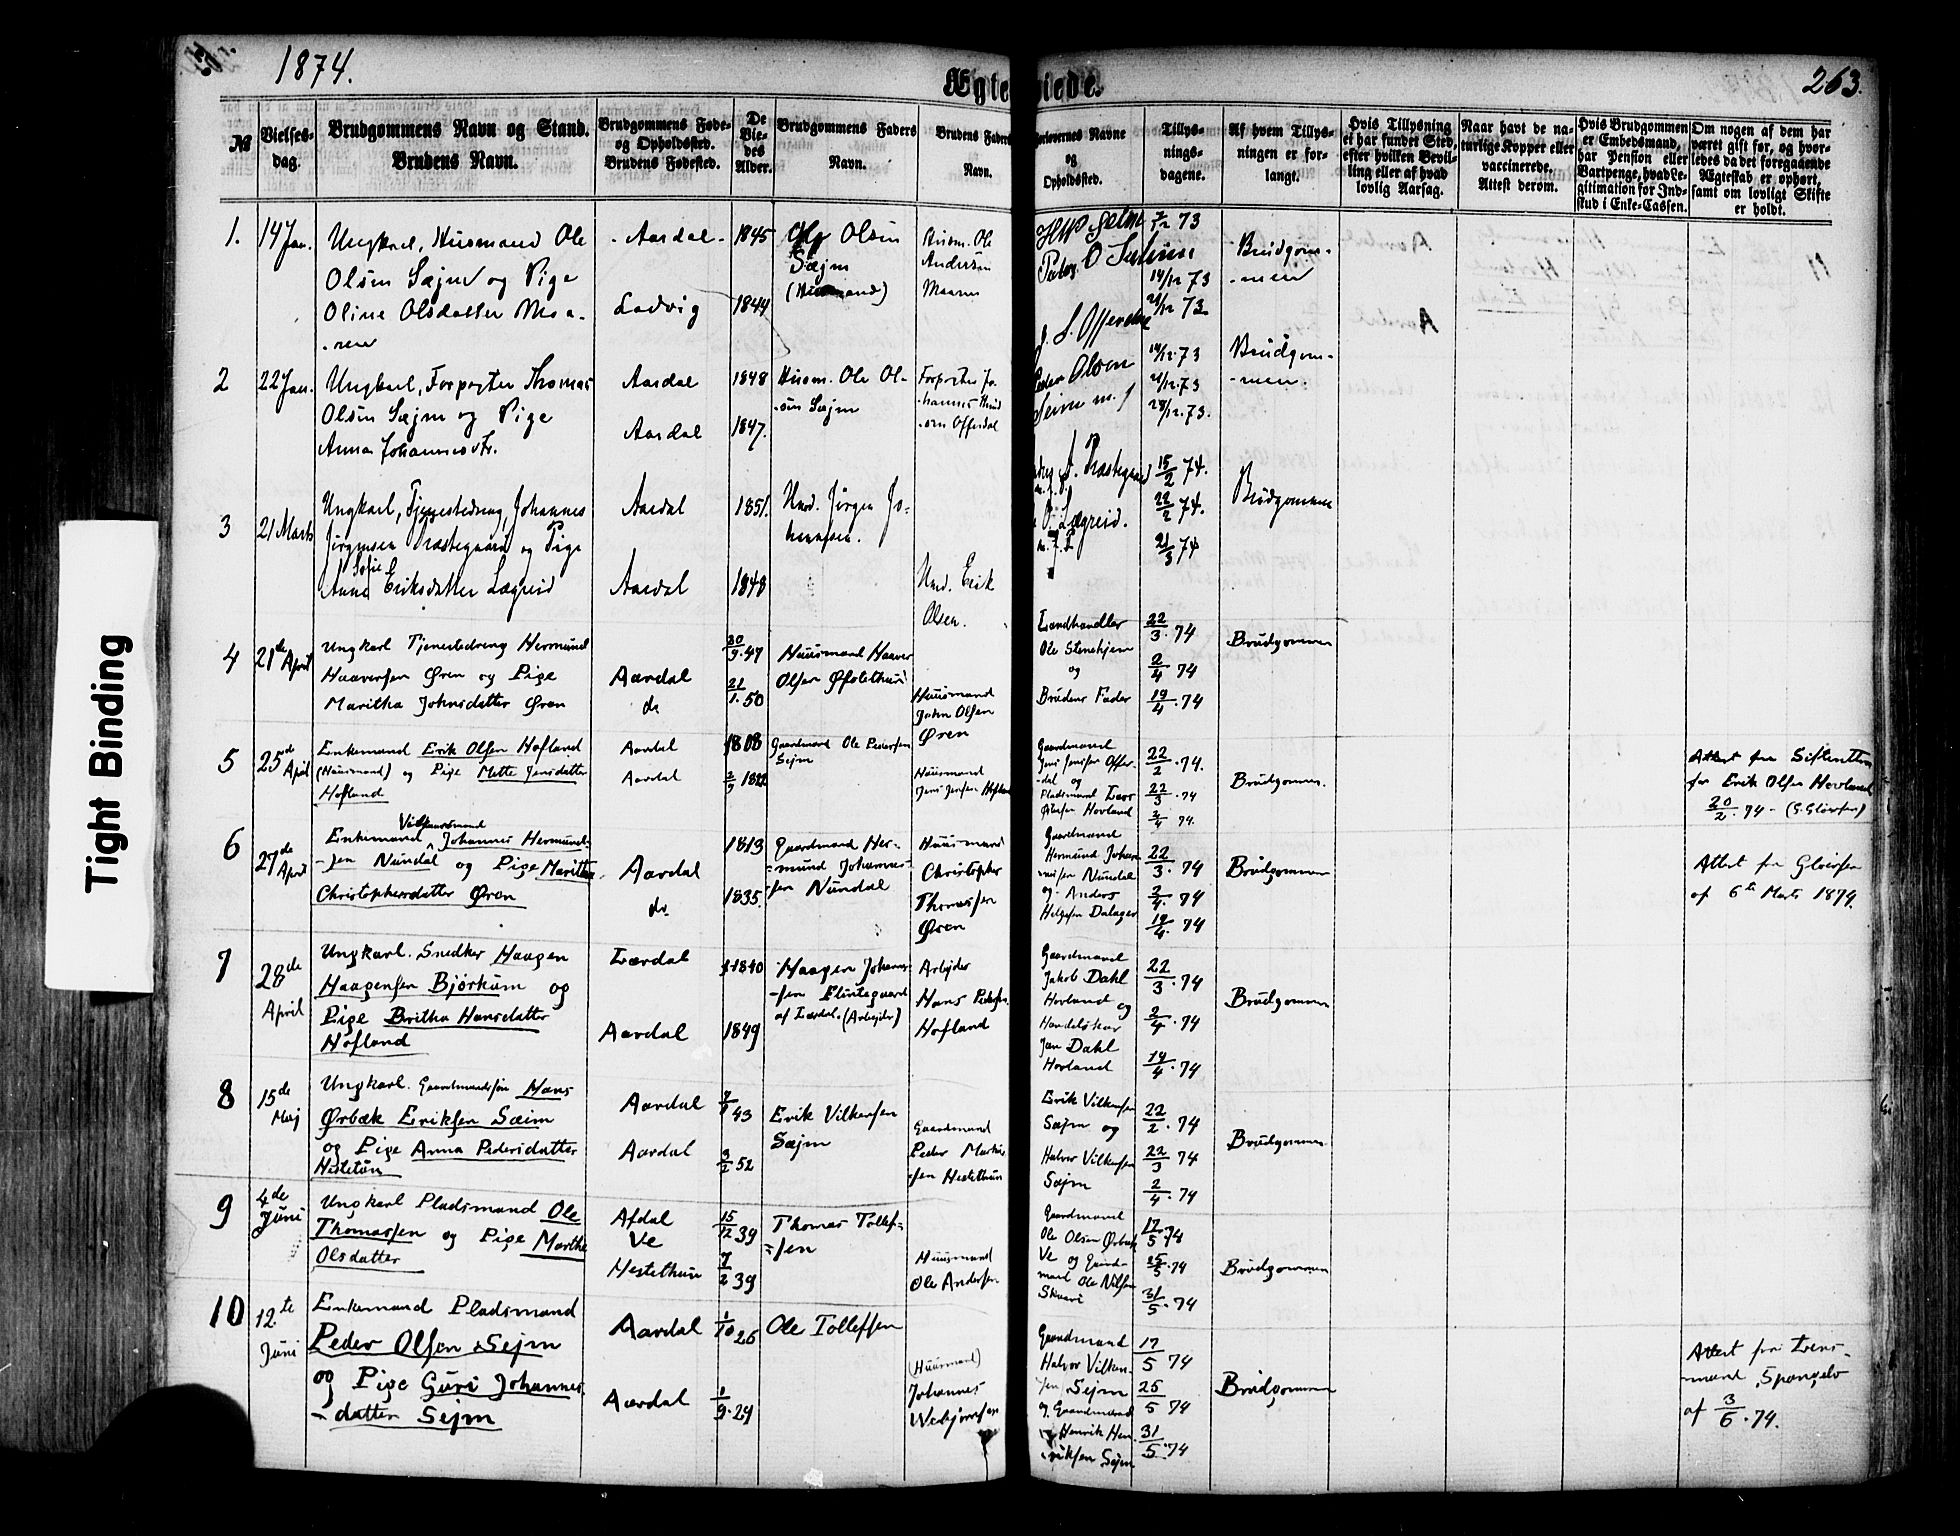 1874.
Ægteviede.
263.
№
Vielses-
dag.
Brudgommens Navn og Stand.
Brudens Navn.
Brudgommens Føde-
og Opholdssted.
Brudens Fødested.
De
Vie-
des
Alder.
Brudgommens Faders
Navn.
Brudens Faders
Navn.
Forlovernes Navne
og
Opholdssted.
Tillys-
nings-
dagene.
Af hvem Tillys-
ningen er for-
langt.
Hvis Tillysning
ei har fundet Sted,
efter hvilken Bevil-
ling eller af hvad
lovlig Aarsag.
Naar havt de na-
turlige Kopper eller
vaccinerede.
Attest derom.
Hvis Brudgommen
er Embedsmand,
har Pension eller
Vartpenge, hvad Le-
gitimation for Ind-
skud i Enke-Cassen.
Om nogen af dem har
været gift før, og hvor-
ledes da det foregaaende
Ægteskab er ophørt,
samt om lovligt Skifte
er holdt.
1.
14 Jan.
Ungkarl, Husmand Ole
Olsen Sæjm og Pige
Oline Olsdatter Moa-
-ren
Aardal
Ladvig
1845
1844
Olsen
Sæjm
(Husmand)
Husm. Ole
Andersen
Moaren
7/12 73
14/12 73
21/12 73
Brudgom-
-men
2
22 Jan.
Ungkarl, Forpagter Thomas
Olsen Sæjm og Pige
Anna Johannesdtr.
Aardal
Aardal
1848
1847.
Husm. Ole Ol-
-sen Sæjm
Forpagter Jo-
-hannes Knud
-sen Offerdal
J. S. Offerdal
Peder Olsen
Seim
14/12. 73
21/12. 73
28/12. 73.
Brudgom-
-men.
3
21 Marts
Ungkarl, Tjenestedreng, Johannes
Jørgensen Præstegaard og Pige
Sofie
Anna Eriksdatter Lægreid
Aardal
Aardal
1851.
1848
Huusm. Jørgen Jo-
hannesen.
Erik
Olsen.
Præstegaard
Lægreid.
15/2 74.
22/2 74.
21/3 74
Brudgommen
4
21de April
Ungkarl Tjenestedreng Hermund
Haaversen Øren og Pige
Maritha Johnsdatter Øren
Aardal
do
20/9. 47
21/1. 50
Huusmand Haaver
Olsen Øfstethun
Huusmand
John Olsen
Øren
Landhandler
Ole Stenehjem
og
Brudens Fader
22/3. 74
2/4 74
19/4. 74
Brudgommen
5
25de April
Enkemand Erik Olsen Hofland
(Huusmand) og Pige Mette Jensdatter
Hofland
Aardal
Aardal
1808
2/9 1822
Gaardmand Ole Pedersen
Sejm
Huusmand
Jens Jensen Hofland
Gaardmand
Jens Jensen Offer-
-dal og
Pladsmand Lars
Hovland
22/2. 74.
22/3. 74
2/4 74.
Brudgommen.
Attest fra Skifteretten
for Erik Olsen Hovland
20/2. 74 -
6
27de April
Enkemand Johannes Hermund-
-sen Nundal og Pige Maritha
Christophersdatter Øren
Aardal
do.
1813
1835.
Gaardmand Her-
-mund Johannes-
-sen Nundal
Huusmand
Christopher
Thomassen
Øren
Gaardmand
Hermund Johan-
nesen Nundal
og Anders
Helgesen Dalager
22/3. 74
2/4. 74
19/4. 74
Brudgommen
Attest fra
af 6te Marts 1874.
7
28de
April
Ungkarl. Snedker Haagen
Haagensen Bjørkum og
Pige Britha Hansdatter
Hofland
Lærdal
Aardal
1840
1849
Haagen Johannes-
-sen
af Lærdal. (Arbejder)
Arbejder
Hans Pedersen
Hofland
Gaardmand
Jakob Dahl
Hovland og
Handelskar
Jan Dahl
Hovland
22/3. 74
2/4. 74
19/4. 74
Brudgommen
8
15de
Maj
Ungkarl. Gaardmandssøn Hans
Ørbæk Eriksen Sæim
og Pige Anna Pedersdatter
Hestetun
Aardal
Aardal
2/1 43
3/2 52
Erik Vilkensen
Sæjm
Gaardmand
Peder Martin-
-sen Hestethun
Erik Vilkensen
Sæjm og
Halvor Vilkensen
Sæjm
22/2. 74
22/3 74
2/4. 74
Brudgommen
9
4de
Juni
Ungkarl Pladsmand Ole
Thomassen og Pige Marthe
Olsdatter
Afdal
Ve
Hestethun
15/12 39
7/2 39
Thomas Tollef-
-sen
Huusmand
Ole Andersen
Gaardmand
Ole Olsen Ørbæk
Ve og Gaard-
mand Ole Nilsen
17/5 74
25/5. 74
31/5. 74
Brudgommen
10
12te
Juni
Enkemand Pladsmand
Peder Olsen Sejm
og Pige Guri Johannes-
-datter Sejm
Aardal
Aardal
1/10 26
1/9. 29
Ole Tollefsen
(Huusmand)
Johannes
Gaardmand
Halvor Vilken-
sen, Sejm
og Gaardmand
Henrik Hen-
-riksen Sejm
17/5 74
25/5 74
31/5. 74
Brudgommen
Attest fra Lens-
-mand Spangelo
af 3/6. 74.
Tight Binding